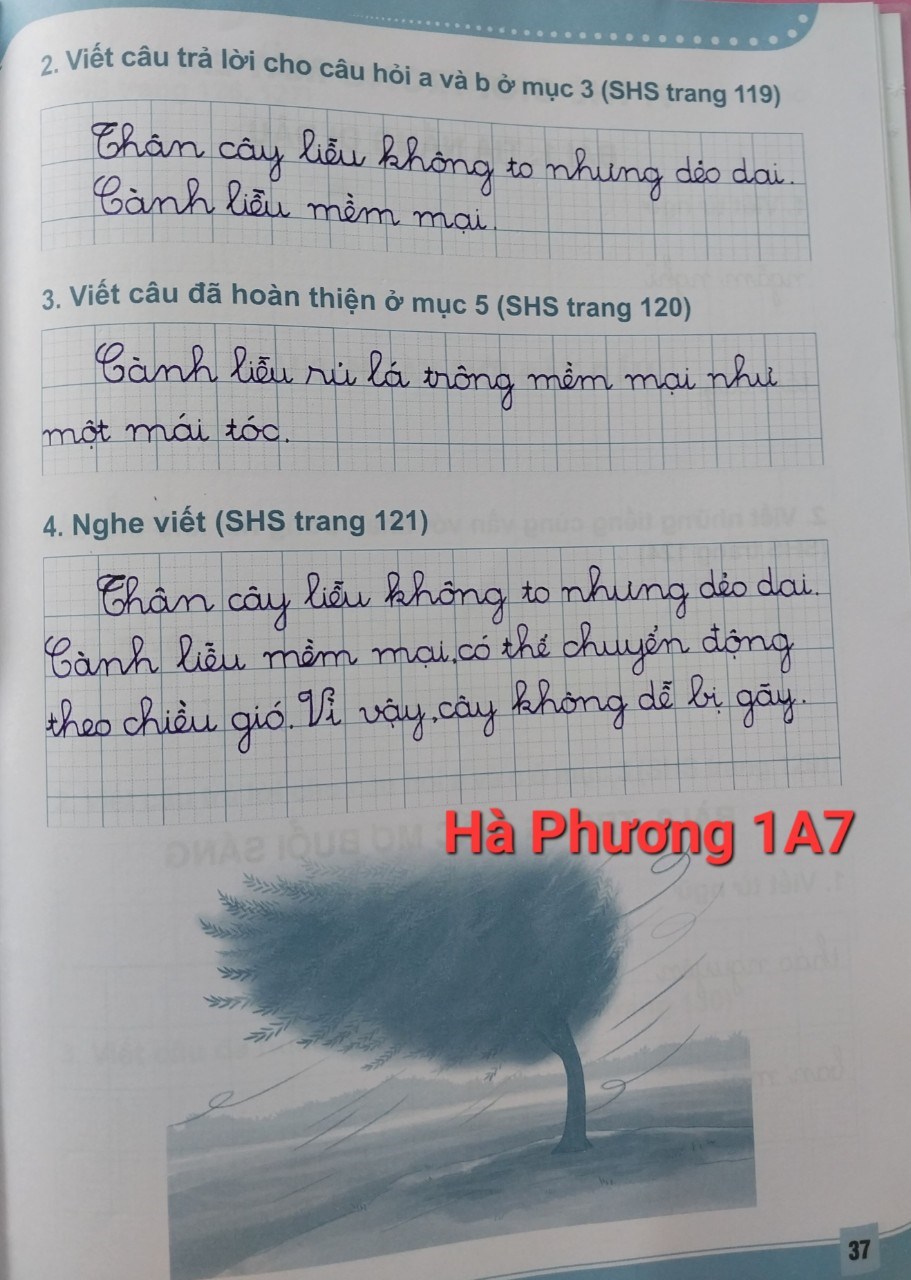 2. Viết câu trả lời cho câu hỏi a và b ở mục 3 (SHS trang 119)
Thân cây liễu không to nhưng dẻo dai.
Cành liễu mềm mại.
3. Viết câu đã hoàn thiện ở mục 5 (SHS trang 120)
Cành liễu rủ lá trông mềm mại như
một mái tóc.
4. Nghe viết (SHS trang 121)
Thân cây liễu không to nhưng dẻo dai.
Cành liễu mềm mại, có thể chuyển động
theo chiều gió. Vì vậy, cây không dễ bị gãy.
Hà Phương 1A7
37